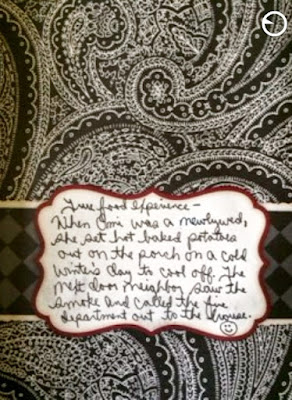 True food experience-
When Omi was a newlywed,
she set hot baked potatoes
out on the porch on a cold
winter's day to cool off. The
next door neighbor saw the
smoke and called the fire
department out to the house.